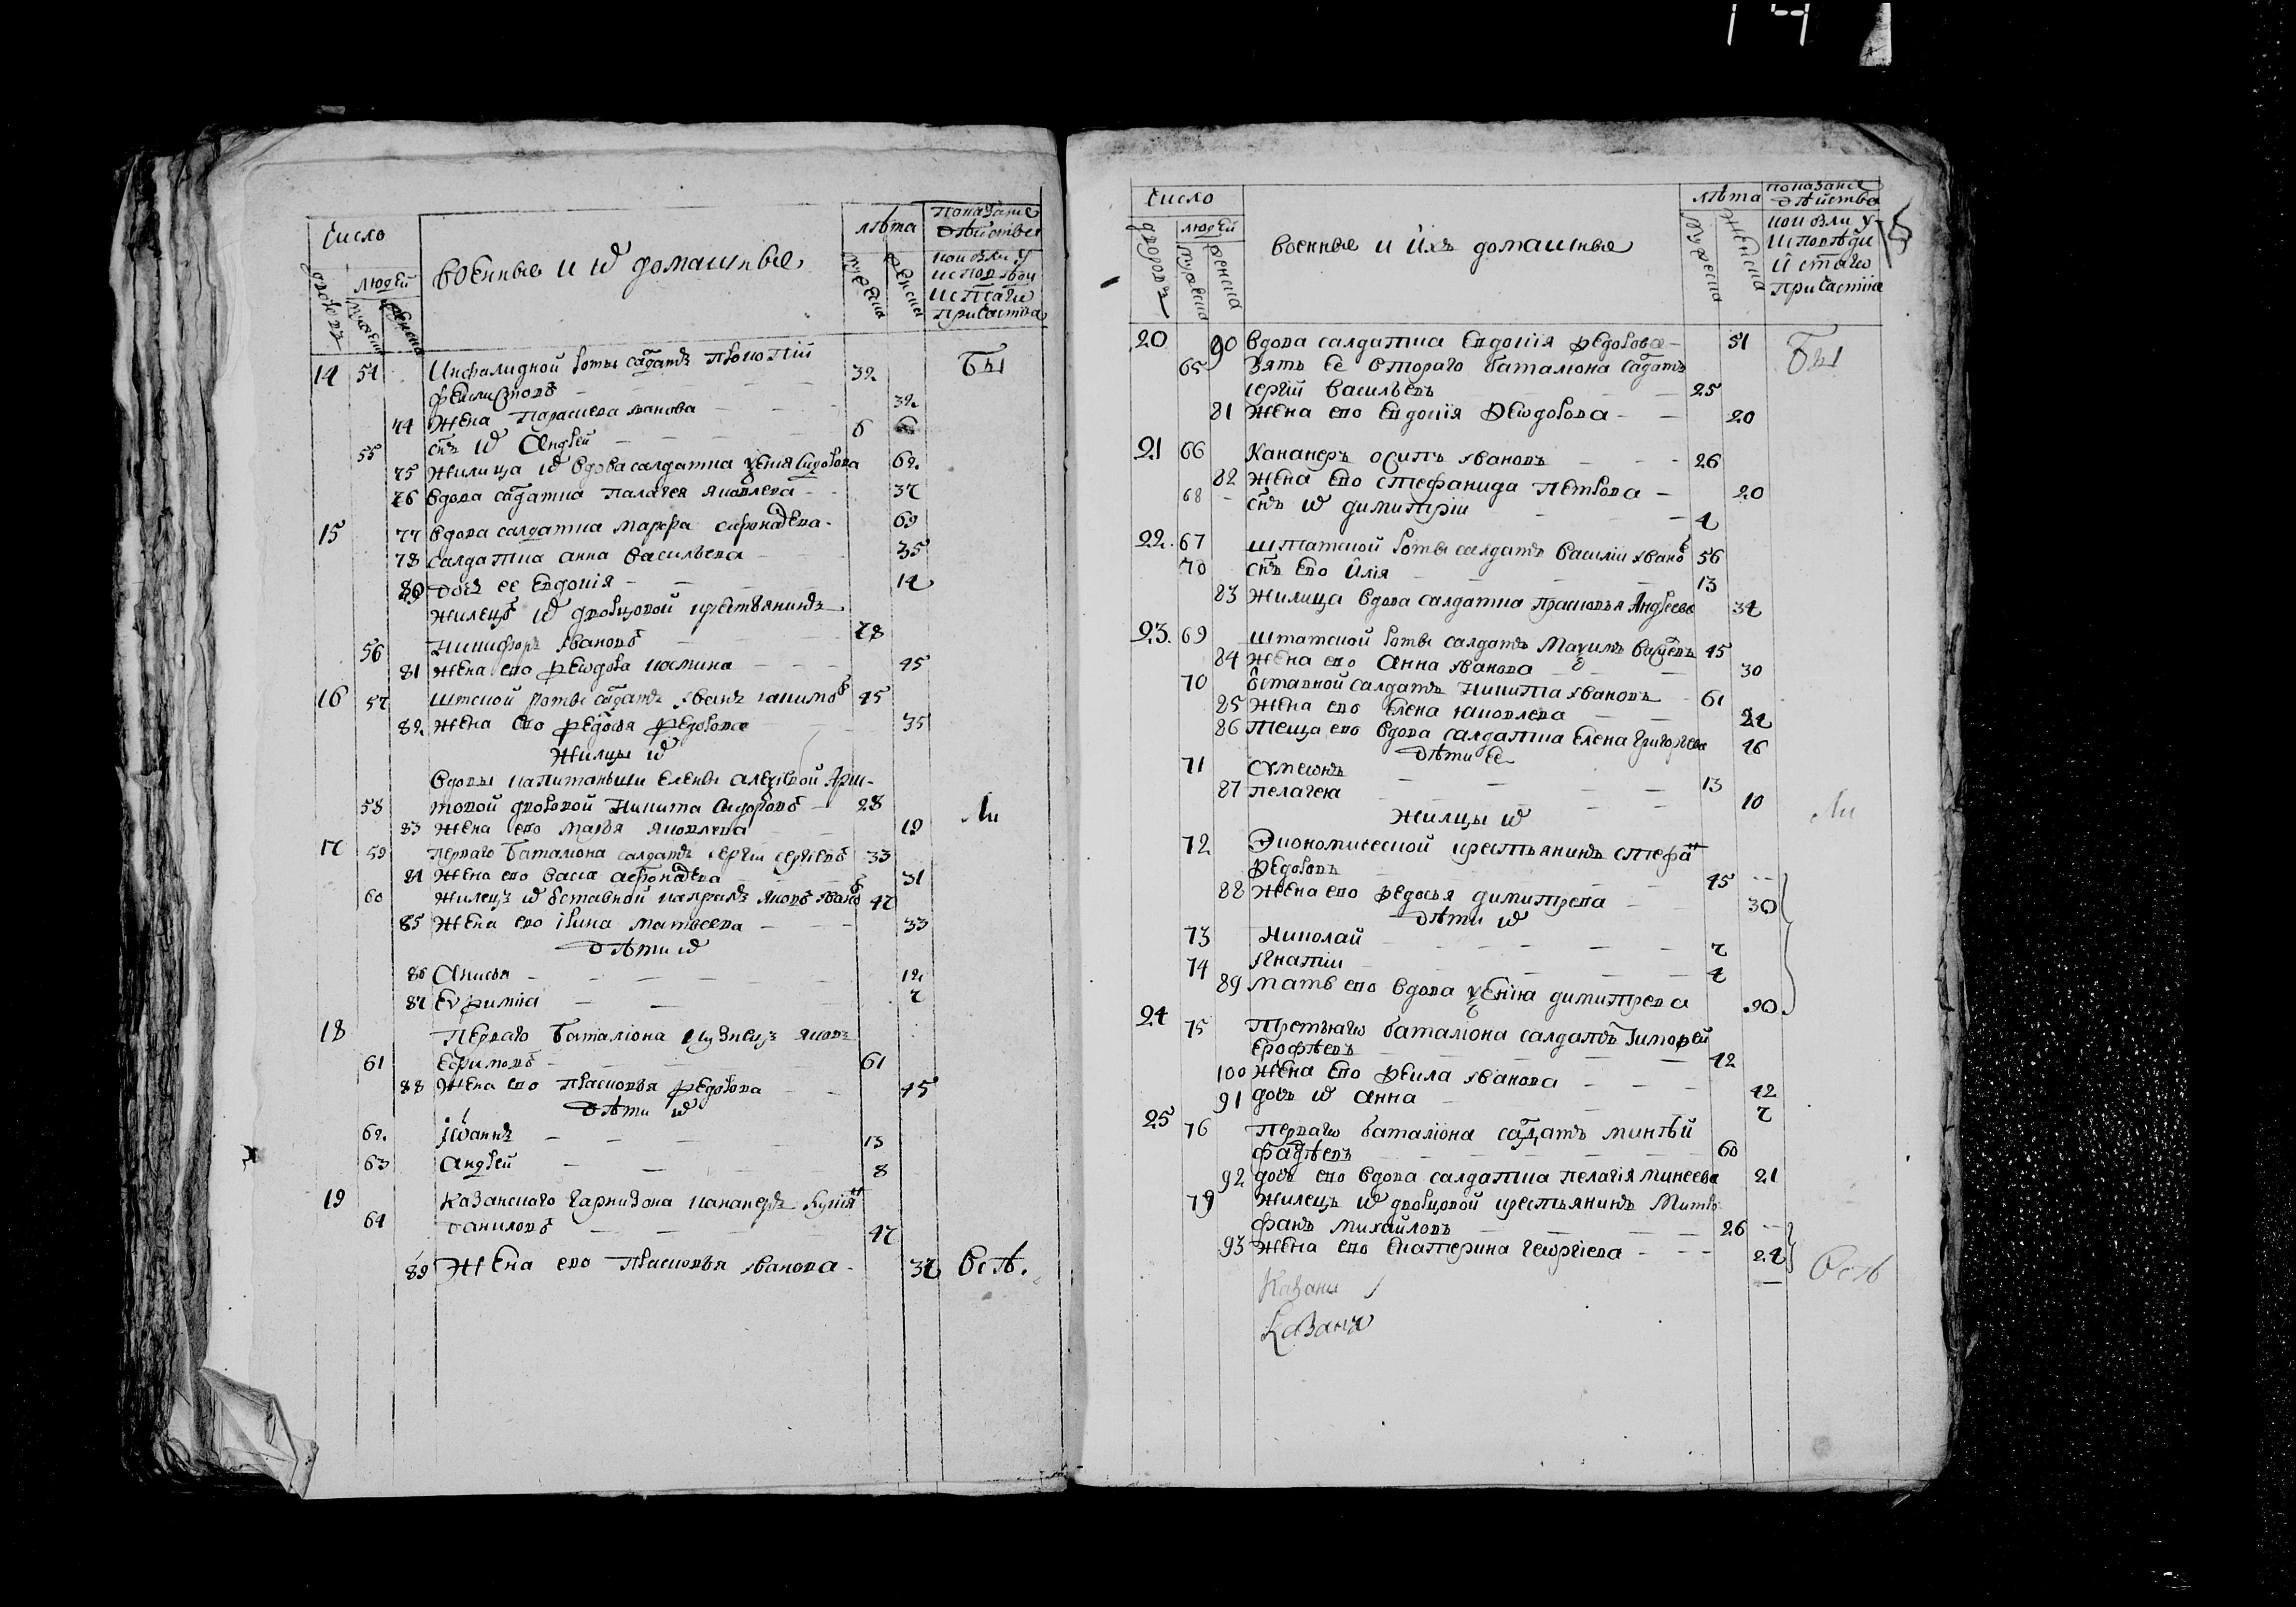 Число
людей
дворовъ
мужеска
женска
военные и ихъ домашные
лѣта
мужеска
женска
показание
дѣйства
кои были у
исповѣди
и стаго
причастия
14 54 Инвалидной роты салдатъ Прокопий
32 Бы
74 Жена Параскева Иванова 32
55 снъ их Андрей 6
75 жилица их вдова салдатка Ѯения Сидорова 62
76 вдова салдатка Палагея Яковлева 37
15 77 вдова салдатка Марфа 69
78 салдатка Анна Васильева 35
80 дочь ее Евдокия 14
жилецъ их дворцовой крестьянинъ
56 Никифоръ Ивановъ 78
81 жена ево Федора 45
16 57 роты салдатъ Иванъ 45
82 жена ево Федосья Федорова 35
Жилцы их
вдовы капитаньши Елены
58 дворовой Никита Сидоровъ 28 Ли
83 жена ево Марья Яковлева 19
17 59 перваго баталиона салдатъ Сергии Сергеевъ 33
84 жена ево 31
60 жилецъ их отставной капралъ Яковъ Ивановъ 47
85 жена ево Ирина Матвеева 33
дѣти их
86 Анисья 12
87 Еѵфимия 7
18 Перваго баталиона Яковъ
61 Ефимовъ 61
88 жена ево Прасковья Федорова 45
дѣти их
62 Иоаннъ 13
63 Андрей 8
19 Казанского гарнизона канонеръ
64 Даниловъ 47
89 Жена ево Прасковья Иванова 37 Всѣ.
Число
людей
дворовъ
мужеска
женска
военные и ихъ домашные
лѣта
мужеска
женска
показание
дѣйства
кои были у
исповѣди
и стаго
причастия
20 90 вдова салдатка Евдокия Федорова 51 Бы
65 зять ее втораго баталиона салдатъ
Сергий Васильевъ 25
81 жена ево Евдокия Феодорова 20
21 66 Канонеръ Осипъ Ивановъ 26
82 жена ево Стефанида Петрова 20
68 снъ их Димитрии 4
22. 67 штатской роты салдатъ Василии Ивановъ 56
70 снъ ево Илия 13
83 жилица вдова салдатка Прасковья Андреева 34
23. 69 штатской роты салдатъ Маѯимъ 45
84 жена ево Анна Иванова 30
70 отставной салдатъ Никита Ивановъ 61
85 жена ево Елена Яковлева 24
86 теща ево вдова салдатка Елена Григорьева 46
дѣти ее
71 Сумеонъ 13
87 Пелагея 10
жилцы их Ли
72 Экономической крестьянинъ Стефанъ
Федоровъ 45
88 жена ево Федосья Димитрева 30
дѣти их
73 Николай 7
74 Игнатии 4
89 мать ево вдова Ѯения Димитрева 90
24 75 третьяго баталиона салдатъ Тимофей
Ерофѣевъ 42
100 жена ево Фекла Иванова 42
91 дочь их Анна 7
25 76 перваго баталиона салдатъ Минѣй
Фадѣевъ 60
92 дочь ево вдова салдатка Пелагия Минеева 21
79 жилецъ их дворцовой крестьянинъ Митро
фанъ Михайловъ 26
93 жена ево Екатерина Георгиева 24 Всѣ
Казань
Казань